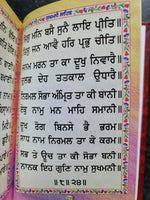 ਸੁਖਮਨੀ ਸਾਹਿਬ
ਜਿਸੁ ਮਨਿ ਬਸੈ ਸੁਨੈ ਲਾਇ ਪ੍ਰੀਤਿ ॥
ਤਿਸੁ ਜਨ ਆਵੈ ਹਰਿ ਪ੍ਰਭੁ ਚੀਤਿ ॥
ਜਨਮ ਮਰਨ ਤਾ ਕਾ ਦੂਖੁ ਨਿਵਾਰੈ ॥
ਦੁਲਭ ਦੇਹ ਤਤਕਾਲ ਉਧਾਰੈ ॥
ਨਿਰਮਲ ਸੋਭਾ ਅੰਮ੍ਰਿਤ ਤਾ ਕੀ ਬਾਨੀ ॥
ਏਕੁ ਨਾਮੁ ਮਨ ਮਾਹਿ ਸਮਾਨੀ ॥
ਦੂਖ ਰੋਗ ਬਿਨਸੇ ਭੈ ਭਰਮ ॥
ਸਾਧ ਨਾਮ ਨਿਰਮਲ ਤਾ ਕੇ ਕਰਮ ॥
ਸਭ ਤੇ ਊਚ ਤਾ ਕੀ ਸੋਭਾ ਬਨੀ ॥
ਨਾਨਕ ਇਹ ਗੁਣਿ ਨਾਮੁ ਸੁਖਮਨੀ ॥
॥੮॥੨੪॥